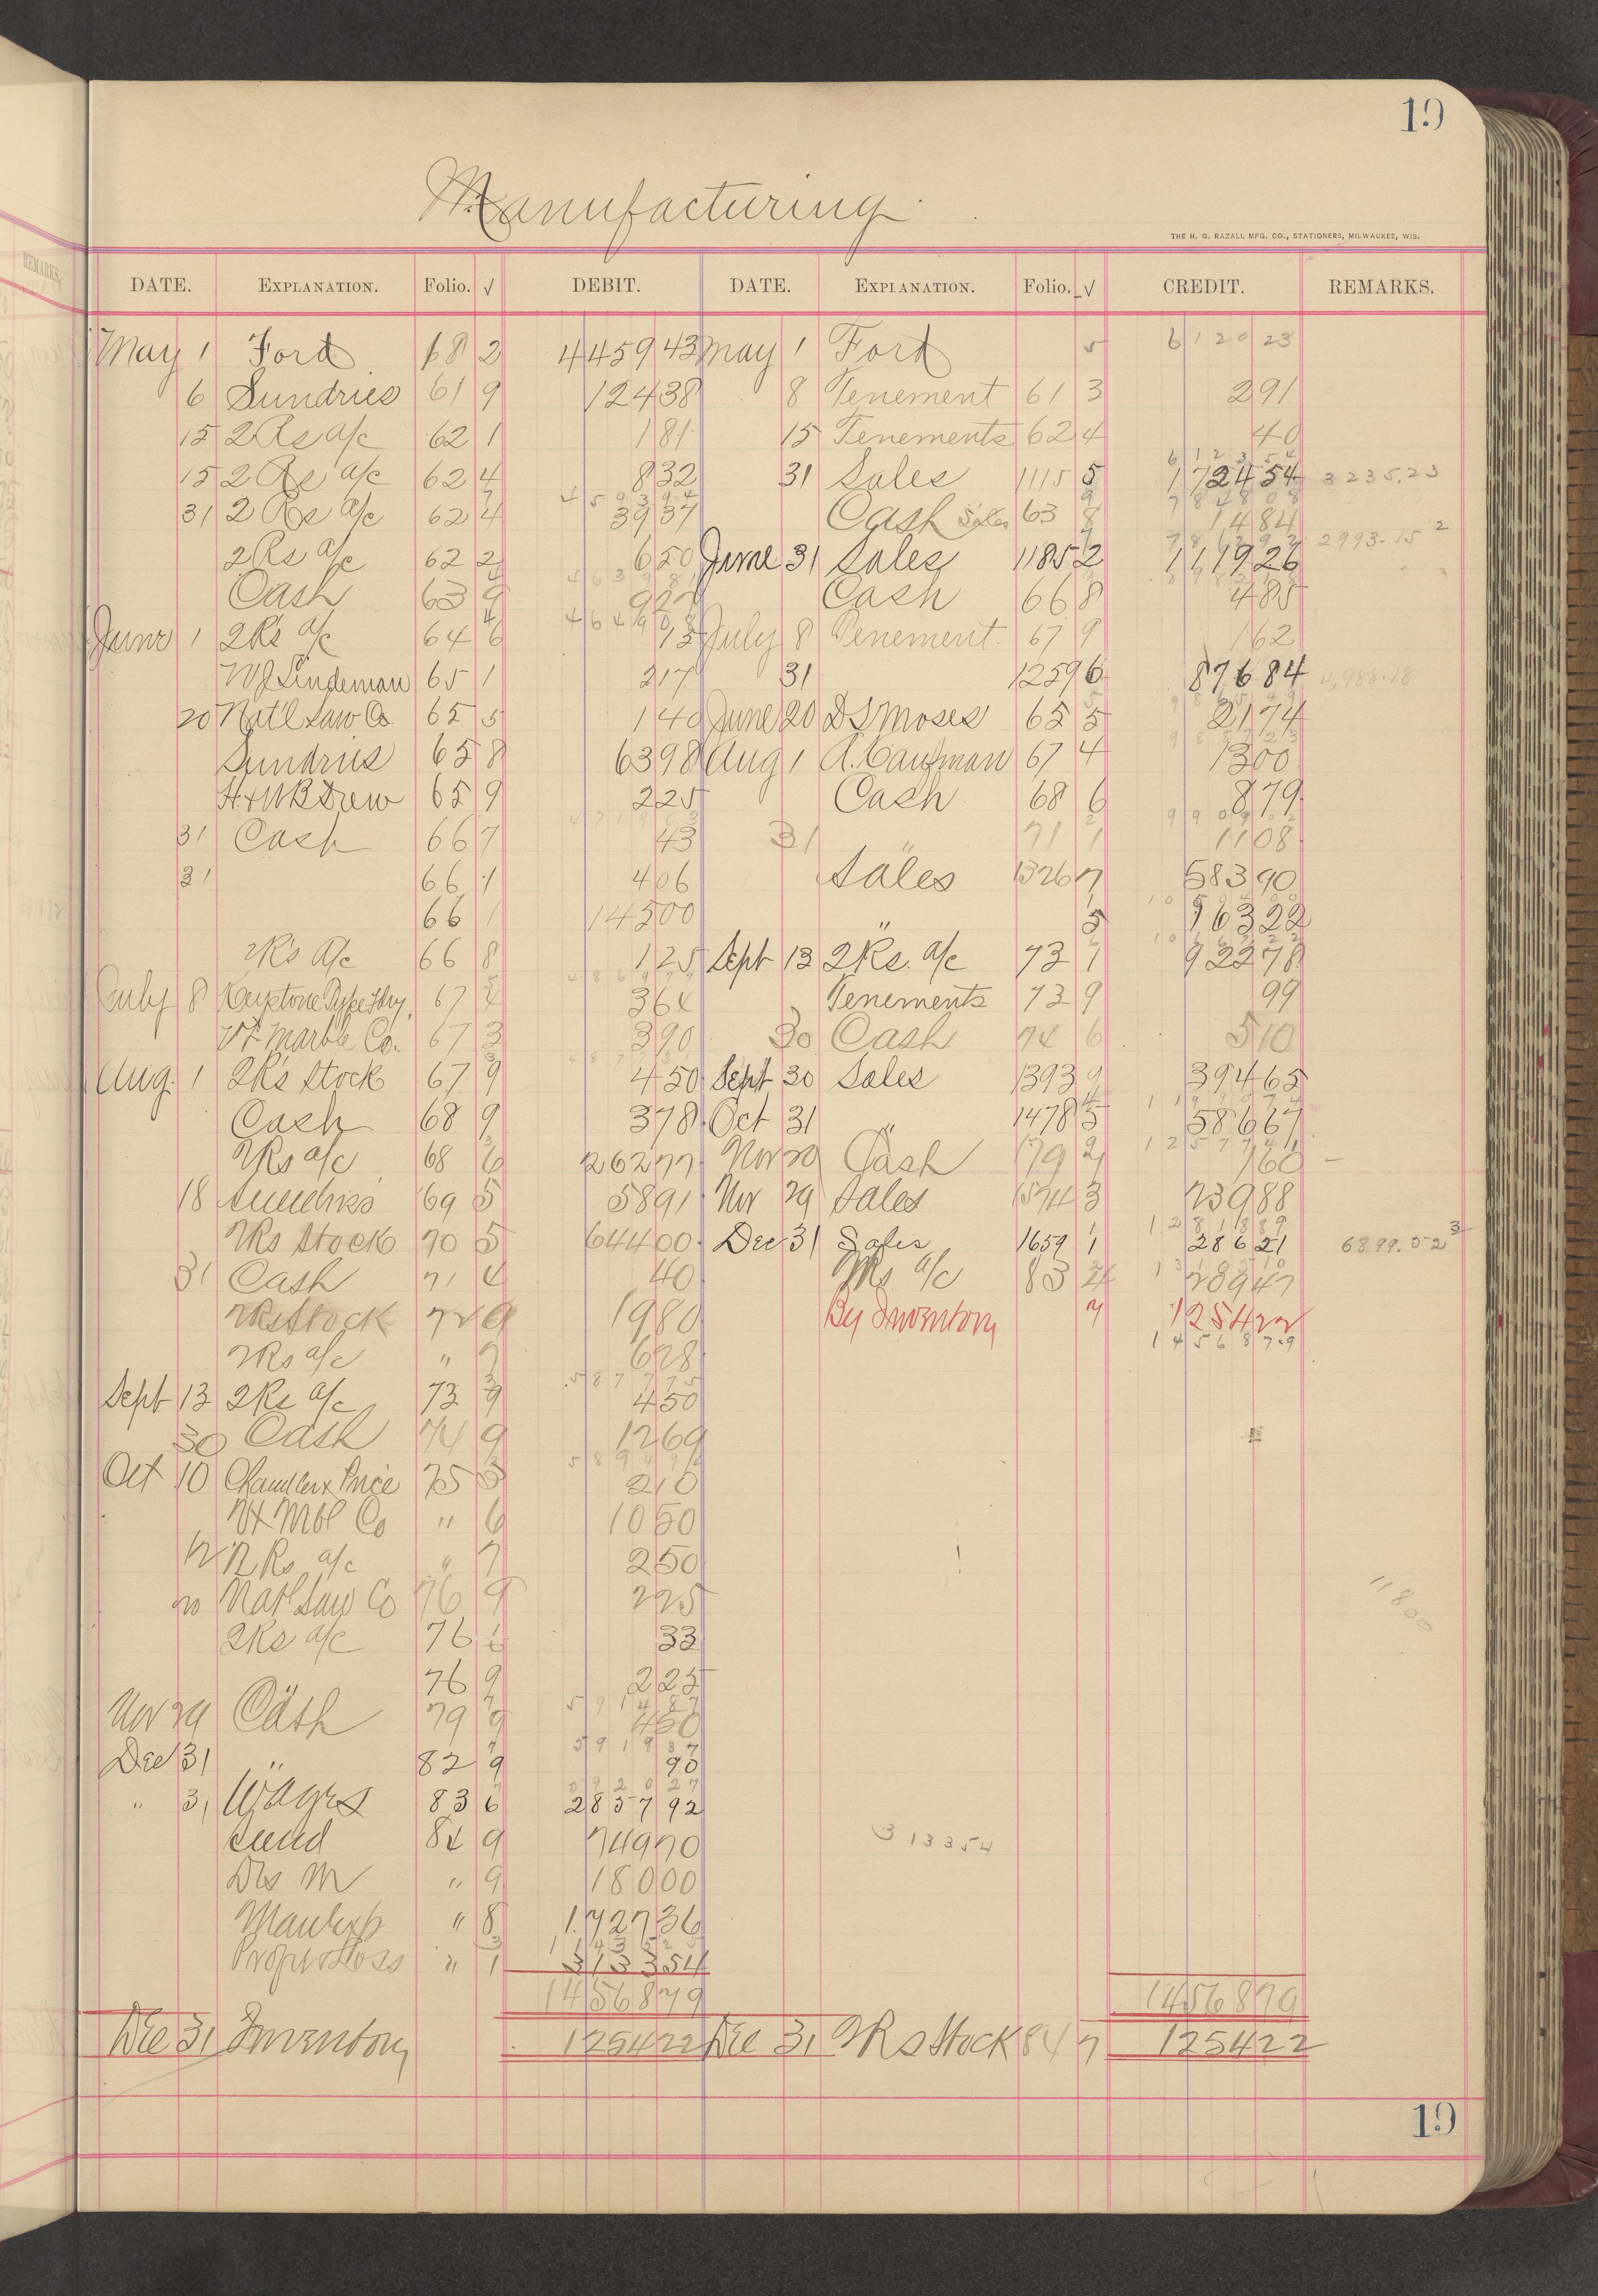 19
Manufacturing
THE H. G. RAZALL MFG. CO., STATIONERS, MILWAUKEE, WIS.
DATE. EXPLANATION. Folio. √ DEBIT. DATE. EXPLANATION. Folio. √ CREDIT. REMARKS.
May 1 Ford 68 2 4459 43 May 1 Ford 5 6120 23
6 Sundries 61 9 124 38 8 Tenement 61 3 2 91
15 2Rs a/c 62 1 1 81 15 Tenements 62 4 40
15 2Rs a/c 62 4 8 32 31 Sales 1115 5 1724 54 3235.23
31 2Rs a/c 62 4 39 37 Cash Sales 63 8 14 84
2Rs a/c 62 2 6 50 June 31 Sales 1185 2 1119 26 2993.15 2
Cash 63 9 9 27 Cash 66 8 4 85
June 1 2R's a/c 64 6 15 July 8 Tenement 67 9 1 62
W J Lindeman 65 1 2 17 31 1259 6 876 84
20 Nat'l Saw Co 65 5 1 40 June 20 D S Moses 65 5 21 74
Sundries 65 8 63 98 Aug 1 A. Caufman 67 4 13 00
H & W B Drew 65 9 2 25 Cash 68 6 8 79
31 Cash 66 7 43 31 71 1 11 08
31 66 1 4 06 Sales 1326 7 583 90
66 1 145 00 " 5 163 22
2R's a/c 66 8 1 25 Sept 13 2Rs. a/c 73 1 922 78
July 8 Keystone Type Fdry. 67 4 3 64 Tenements 73 9 99
Vt Marble Co. 67 3 3 90 30 Cash 74 6 5 10
Aug. 1 2R's Stock 67 9 4 50 Sept 30 Sales 1393 9 394 65
Cash 68 9 3 78 Oct 31 " 1478 5 586 67
2Rs a/c 68 6 262 77 Nov 29 Cash 79 2 1 60
18 Sundries 69 5 58 91 Nov 29 Sales 1574 3 239 88
2Rs Stock 70 5 644 00 Dec 31 Sales 1659 1 286 21 6899.02 3
31 Cash 71 4 40 2Rs a/c 83 4 209 47
2Rs Stock 72 9 19 80 By Inventory 7 1254 22
2Rs a/c " 7 6 28 14568 79
Sept 13 2Rs a/c 73 9 4 50
30 Cash 74 9 12 69
Oct 10 Chandler & Price 75 3 2 10
Vt Mbl Co " 6 10 50
12 2Rs a/c " 7 2 50
20 Nat'l Saw Co 76 9 2 25
2Rs a/c 76 6 33
76 9 2 25
Nov 29 Cash 79 9 4 50
Dec 31 " 82 9 90
" 31 Wages 83 6 2857 92
Sund 84 9 749 70 313354
Dis M " 9 180 00
Man Exp " 8 1727 36
Prof & Loss " 1 3133 54
14568 79 14568 79
Dec 31 Inventory 1254 22 Dec 31 2Rs Stock 84 7 1254 22
11800
19